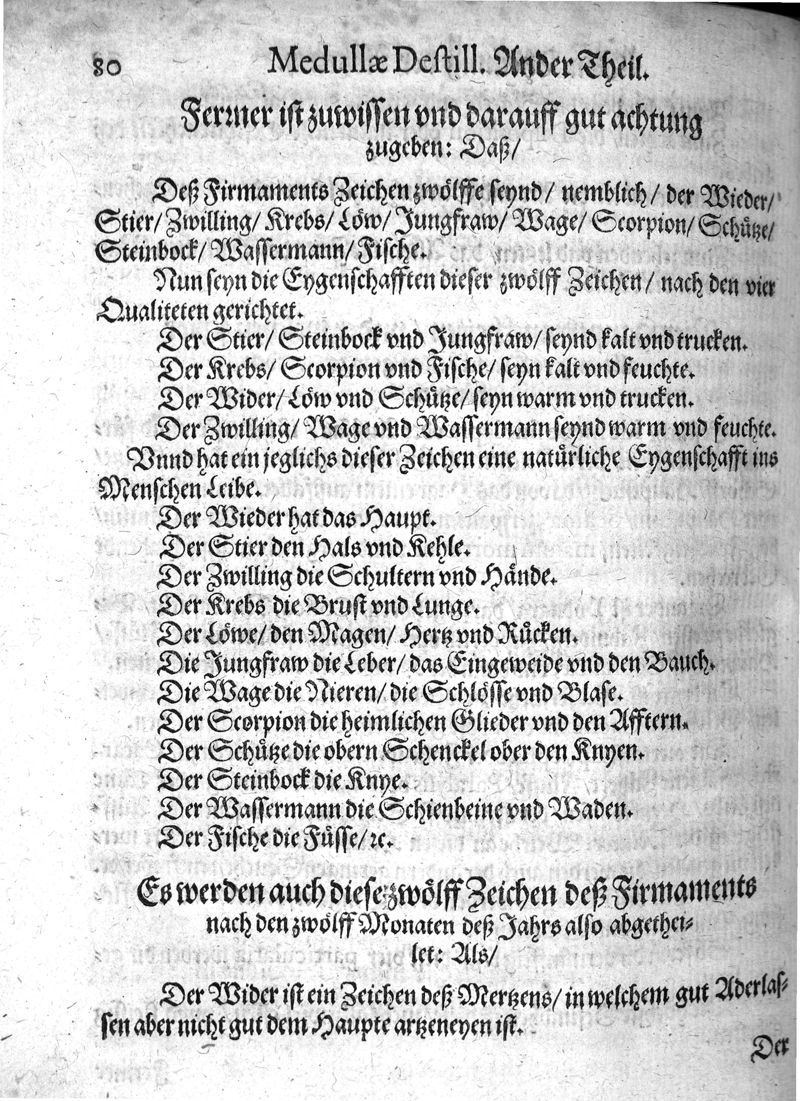 80 Medullæ Destill. Ander Theil.
Ferner ist zuwissen vnd darauff gut achtung
zugeben: Daß/
Deß Firmaments Zeichen zwölffe seynd/ nemblich/ der Wieder/
Stier/ Zwilling/ Krebs/ Löw/ Jungfraw/ Wage/ Scorpion/ Schütze/
Steinbock/ Wassermann/ Fische.
Nun seyn die Eygenschafften dieser zwölff Zeichen/ nach den vier
Qualiteten gerichtet.
Der Stier/ Steinbock vnd Jungfraw/ seynd kalt vnd trucken.
Der Krebs/ Scorpion vnd Fische/ seyn kalt vnd feuchte.
Der Wider/ Löw vnd Schütze/ seyn warm vnd trucken.
Der Zwilling/ Wage vnd Wassermann seynd warm vnd feuchte.
Vnnd hat ein jeglichs dieser Zeichen eine natürliche Eygenschafft ins
Menschen Leibe.
Der Wieder hat das Haupt.
Der Stier den Hals vnd Kehle.
Der Zwilling die Schultern vnd Hände.
Der Krebs die Brust vnd Lunge.
Der Löwe/ den Magen/ Hertz vnd Rücken.
Die Jungfraw die Leber/ das Eingeweide vnd den Bauch.
Die Wage die Nieren/ die Schlösse vnd Blase.
Der Scorpion die heimlichen Glieder vnd den Afftern.
Der Schütze die obern Schenckel ober den Knyen.
Der Steinbock die Knye.
Der Wassermann die Schienbeine vnd Waden.
Der Fische die Füsse/ ꝛc.
Es werden auch diese zwölff Zeichen deß Firmaments
nach den zwölff Monaten deß Jahrs also abgethei-
let: Als/
Der Wider ist ein Zeichen deß Mertzens/ in welchem gut Aderlas-
sen aber nicht gut dem Haupte artzeneyen ist.
Der